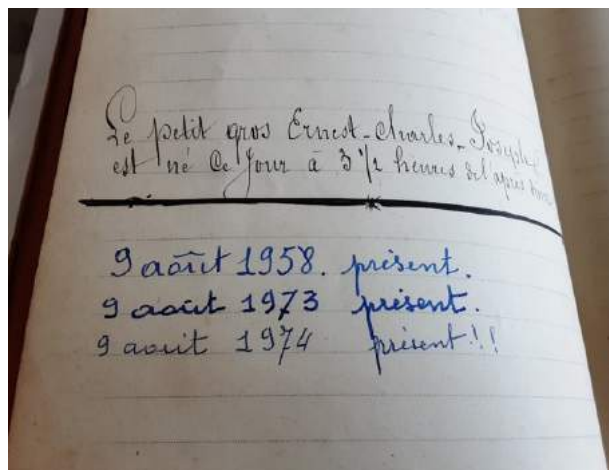 Le petit gros Ernest-Charles-Joseph
est né Ce Jour à 3 1/2 heures de l'après dîner
9 août 1958. présent.
9 août 1973 présent.
9 août 1974 présent!!